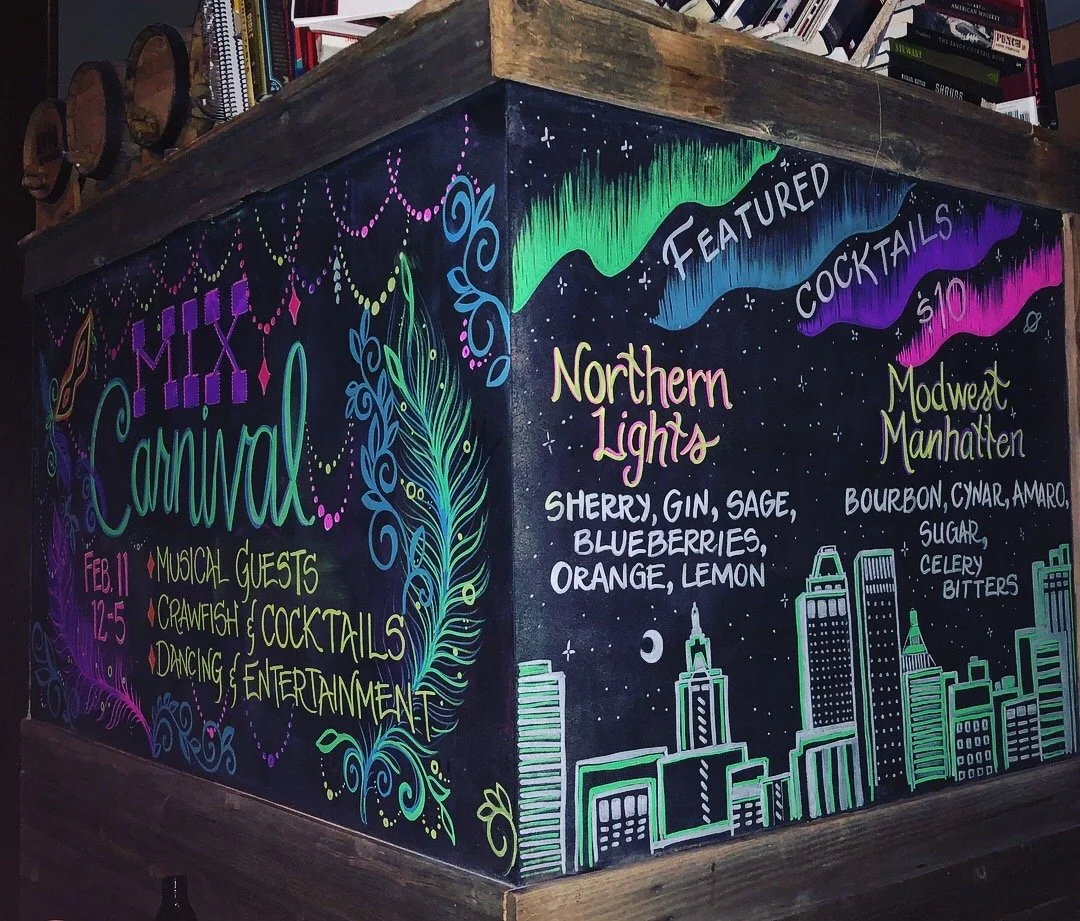 MIX
Carnival
FEB. 11
12-5
MUSICAL GUESTS
CRAWFISH & COCKTAILS
DANCING & ENTERTAINMENT
FEATURED
COCKTAILS
$10
Northern
Lights
SHERRY, GIN, SAGE,
BLUEBERRIES,
ORANGE, LEMON
Modwest
Manhatten
BOURBON, CYNAR, AMARO,
SUGAR,
CELERY
BITTERS
AMERICAN WHISKEY
PUNCH
STEWART
SHRUBS